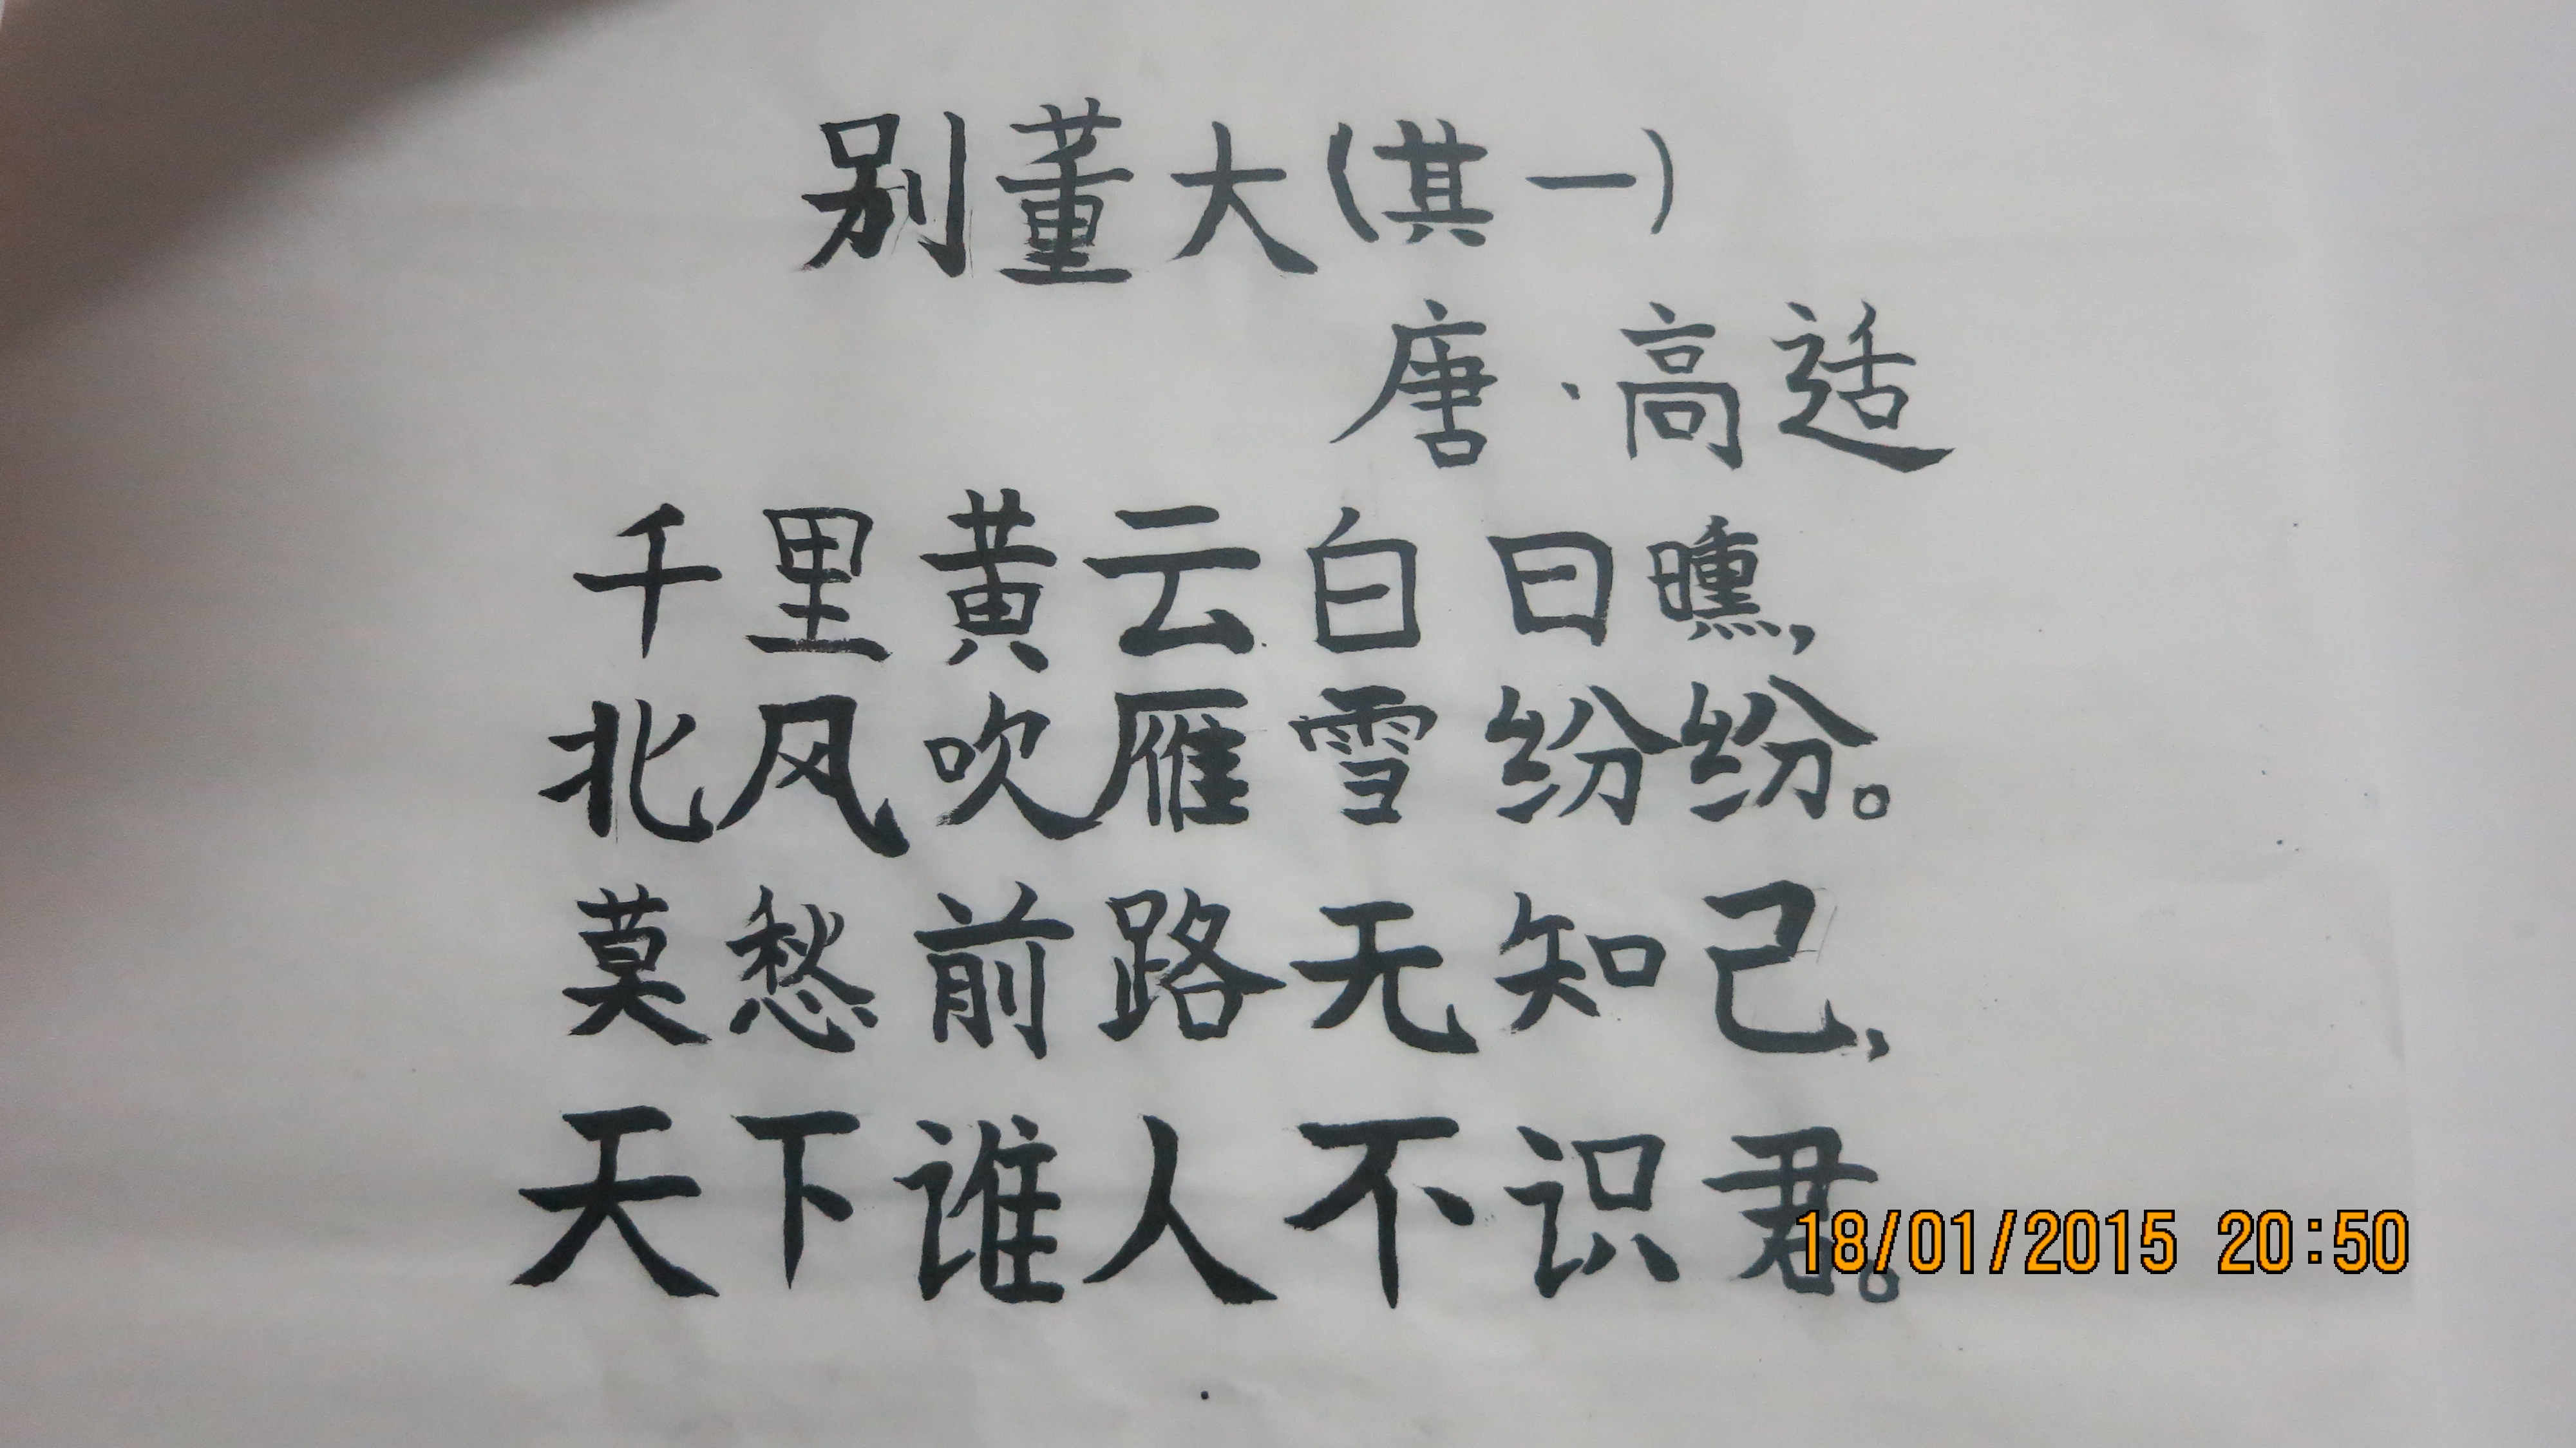 别董大(其一)
唐·高适
千里黄云白日曛,
北风吹雁雪纷纷。
莫愁前路无知己,
天下谁人不识君。
18/01/2015 20:50